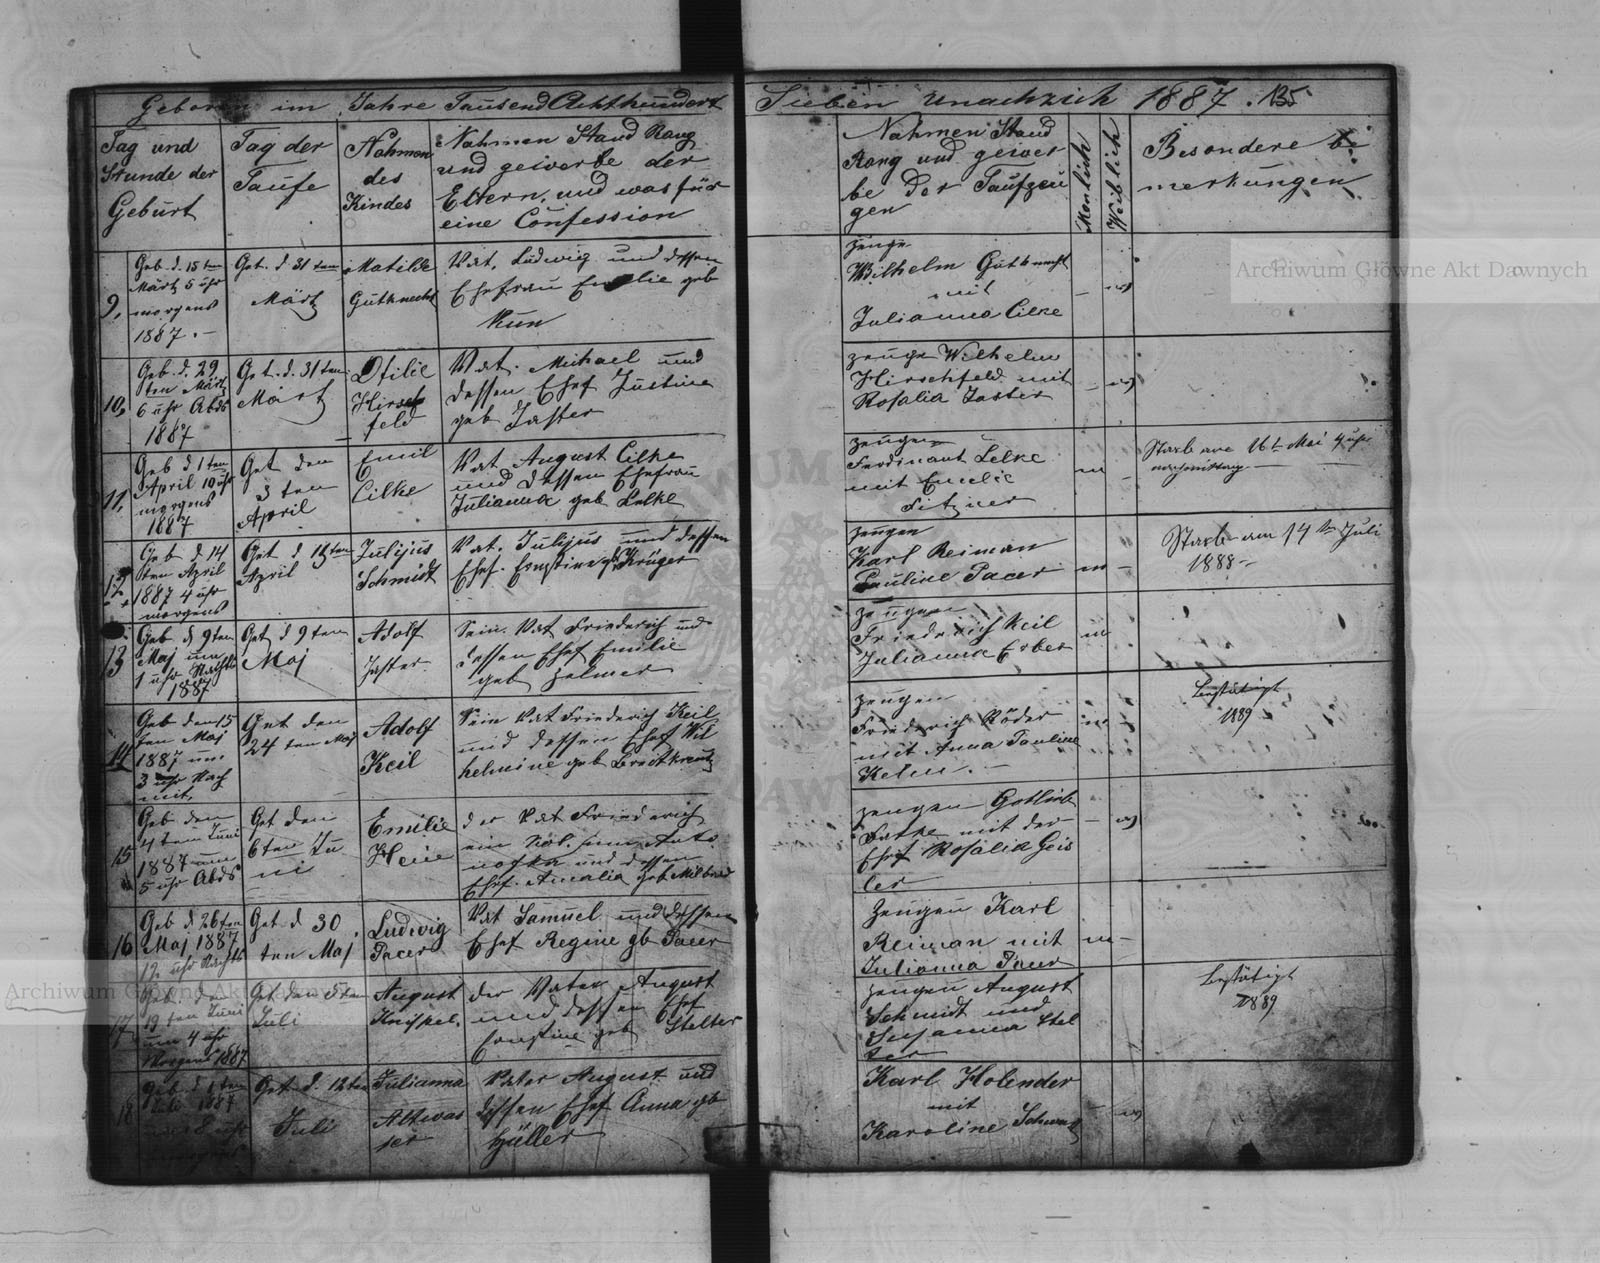 Geboren im Jahre Tausend Achthundert Sieben unachzich 1887. 135
Tag und
Stunde der
Geburt
Tag der
Taufe
Nahmen
des
Kindes
Nahmen Stand Rang
und geiverbe der
Eltern, und was für
eine Confession
Nahmen Stand
Rang und geiver
be der Taufzeu
gen
Manlich
Weiblich
Besondere be
merkungen
9,
Geb. d. 15ten
Märtz 5 uhr
morgens
1887.
Get. d 31ten
Märtz
Matilde
Gutknecht
Vat. Ludwig und dessen
Ehefrau Emilie geb
Kun
zeuge
Wilhelm Gutknecht
mit
Julianna Cilke
- w
10,
Geb. d. 29
ten Märtz
6 uhr Abds
1887
Get. d. 31ten
Märt
Otilie
Hirsch
feld
Vat. Michael und
dessen Ehef Justine
geb Jaster
zeuge Wilhelm
Hirschfeld mit
Rosalia Jaster
- w
11,
Geb d 1ten
April 10 uhr
morgens
1887
Get den
3 ten
April
Emil
Cilke
Vat August Cilke
und dessen Ehefrau
Julianna geb Lelke
zeugen
Ferdinant Lelke
mit Emilie
Fitzner
m -
Starb am 16t Mai 4 uhr
nachmittag
12,
Geb d 14
ten April
1887 4 uhr
morgens
Get d 15ten
April
Julijus
Schmidt
Vat. Julijus und dessen
Ehef. Ernstine gb Krüger
zeugen
Karl Reiman
Pauline Pacer
m -
Starb am 14 ten Juli
1888
13
Geb d 9ten
Maj um
1 uhr Nachts
1887
Get d 9ten
Maj
Adolf
Jaster
Sein Vat Friederich und
dessen Ehef Emilie
geb Zelmer
zeugen
Friedrich Keil
Julianna Erber
m
14
Geb den 15
ten Maj
1887 um
3 uhr Nach
mit,
Get den
24 ten Maj
Adolf
Keil
Sein Vat Friederich Keil
und dessen Ehef Wil
helmine geb Brodtkreutz
zeugen
Friederich Röder
mit Anna Pauline
Kelm.
m -
bestätigt
1889
15
Geb den
4 ten Juni
1887 um
5 uhr Abds
Get den
6ten Ju
ni
Emilie
Heine
der Vat Friederich
ein Kol. in Anto
nofka und dessen
Ehef. Amalia geb Milbrad
zeugen Gotlieb
Fatke mit der
Ehef Rosalia Geis
ler
- w
16
Geb d 26ten
Maj 1887
12 uhr Nachts
Get d 30
ten Maj
Ludwig
Pacer
Vat Samuel und dessen
Ehef Regine gb Pacer
Zeugen Karl
Reiman mit
Julianna Pacer
m -
17
Geb. den
19 ten Juni
um 4 uhr
Morgens 1887
Get den 5ten
Juli
August
Knispel.
der Vater August
und dessen Ehef
Ernstine geb Stelter
zeugen August
Schmidt und
Susanna Stel
ter
bestätigt
1889
18
Geb. d. 1 ten
Juli 1887
um 8 uhr
morgens
Get d. 12ten
Juli
Julianna
Altwas
ser
Vater August und
dessen Ehef Anna gb
Hüller
Karl Holender
mit
Karoline Schwartz
- w
Archiwum Główne Akt Dawnych
Archiwum Główne Akt Dawnych